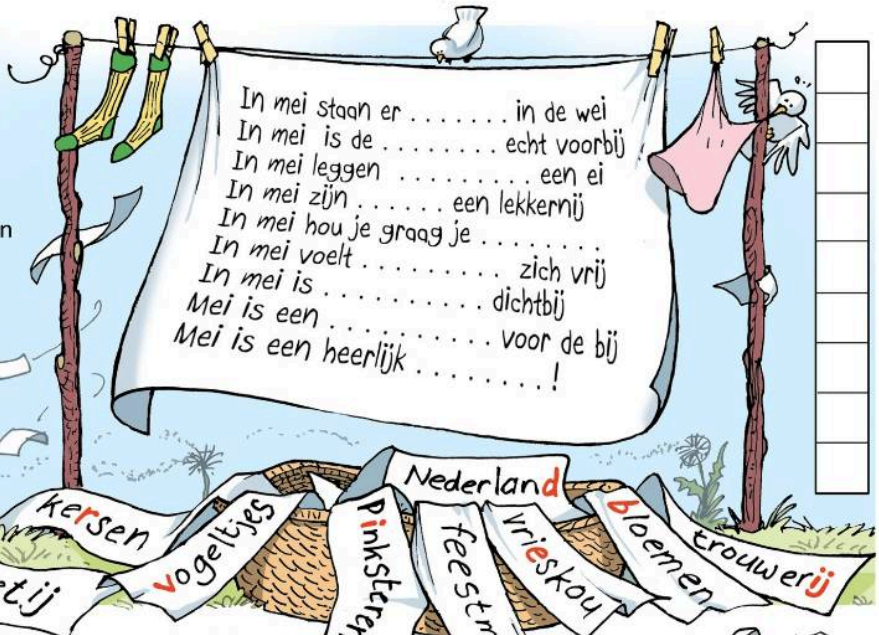 In mei staan er ........ in de wei
In mei is de ......... echt voorbij
In mei leggen .......... een ei
In mei zijn ...... een lekkernij
In mei hou je graag je ........
In mei voelt .......... zich vrij
In mei is .......... dichtbij
Mei is een .......... voor de bij
Mei is een heerlijk ........!
n
Nederland
kersen
vogeltjes
Pinksteren
feestm
vrieskou
bloemen
trouwerij
etij